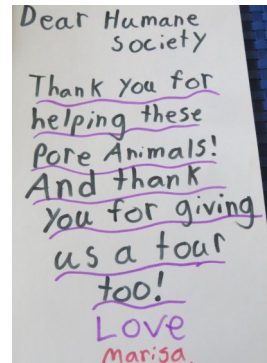 Dear Humane
Society
Thank you for
helping these
Pore Animals!
And thank
you for giving
us a tour
too!
Love
Marisa